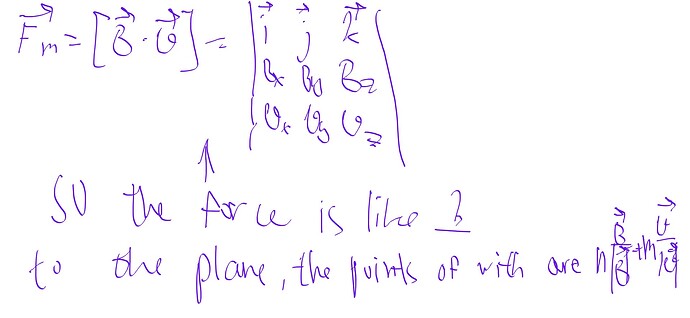 F⃗m = [B⃗ · v⃗] = | i⃗ j⃗ k⃗ |
Bx By Bz
vx vy vz
↑
SO the force is like ?
to the plane, the points of with are n B⃗/|B⃗| + m v⃗/|v⃗|